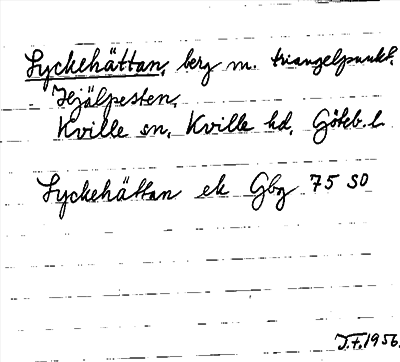 Lyckehättan, berg m. triangelpunkt.
Hjälpesten,
Kville sn, Kville hd, Göteb. l.
Lyckehättan ek Gbg 75 SO
J.F. 1956.